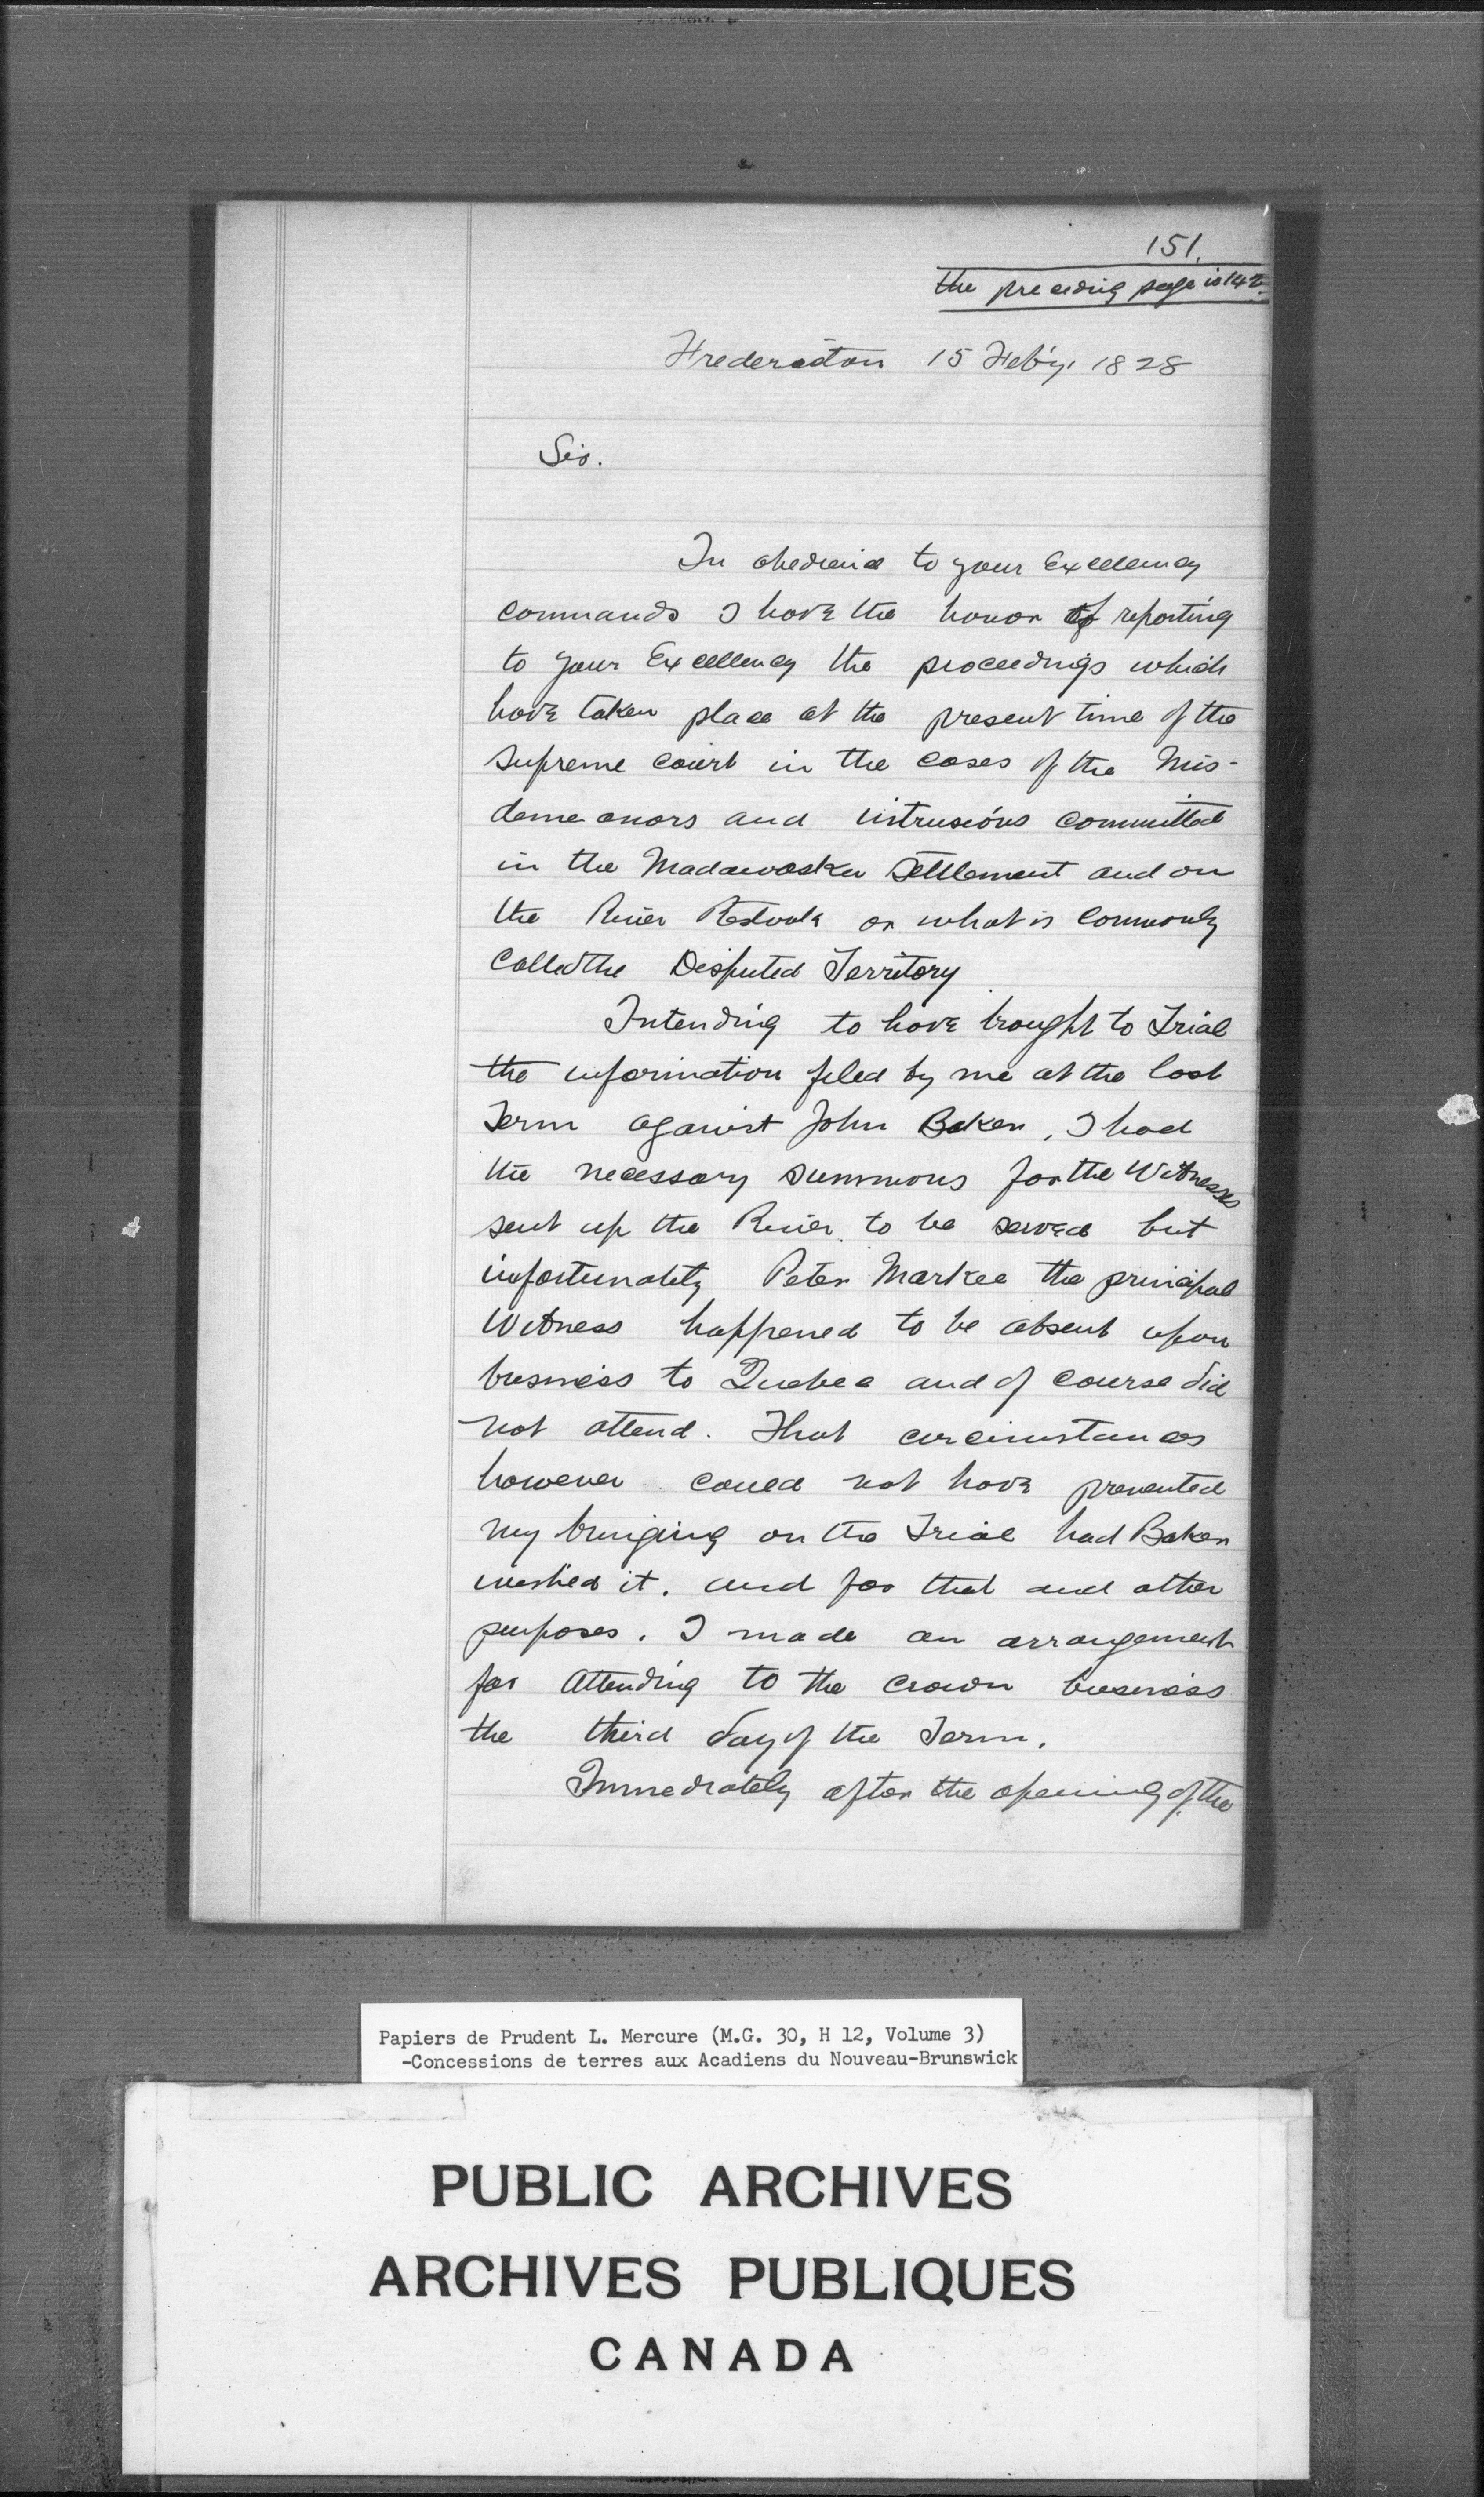 151.
the preceding page is 142
Fredericton 15 Feb'y. 1828
Sir.
In obedience to your Excellency
commands I have the honor of reporting
to your Excellency the proceedings which
have taken place at the present time of the
supreme court in the cases of the Mis-
demeanors and intrusions committed
in the Madawaska Settlement and on
the River Restook or what is commonly
called the Disputed Territory
Intending to have brought to Trial
the information filed by me at the last
Term against John Baker, I had
the necessary summons for the Witnesses
sent up the River to be served but
infortunately Peter Markee the principal
Witness happened to be absent upon
business to Quebec and of course did
not attend. That circumstances
however could not have prevented
my bringing on the Trial had Baker
wished it. and for that and other
purposes. I made an arrangement
for attending to the crown business
the third day of the Term.
Immediately after the opening of the
Papiers de Prudent L. Mercure (M.G. 30, H 12, Volume 3)
-Concessions de terres aux Acadiens du Nouveau-Brunswick
PUBLIC ARCHIVES
ARCHIVES PUBLIQUES
CANADA